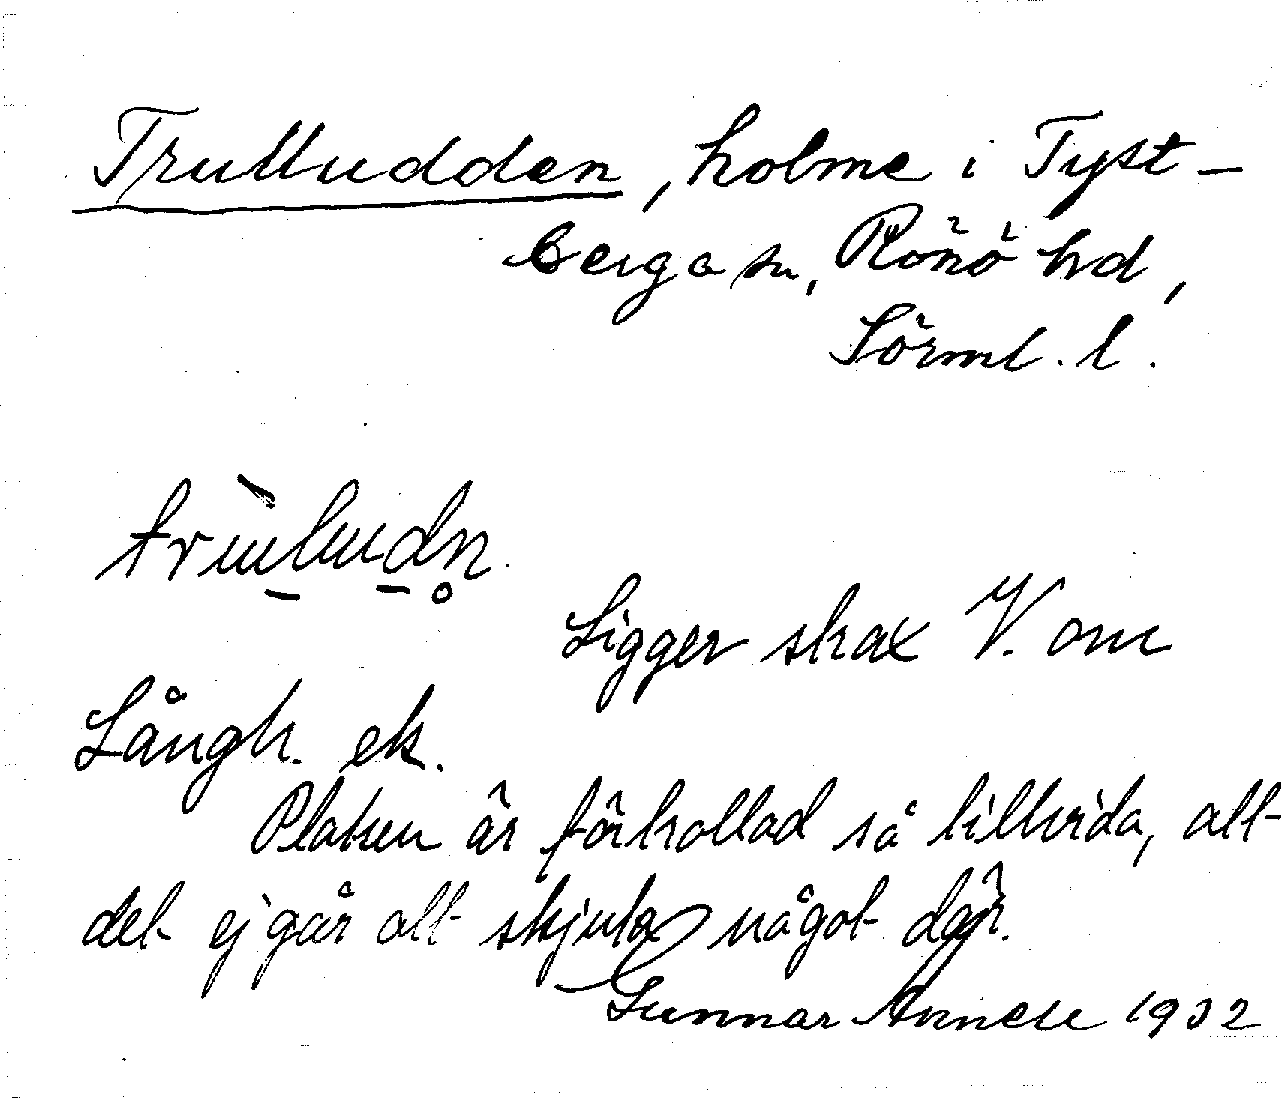 Trulludden, holme i Tyst-
berga sn, Rönö hd,
Sörml. l.
Ligger strax V. om
Långh. ek.
Platsen är förtrollad så tillvida, att
det ej går att skjuta något där.
Gunnar Annell 1932